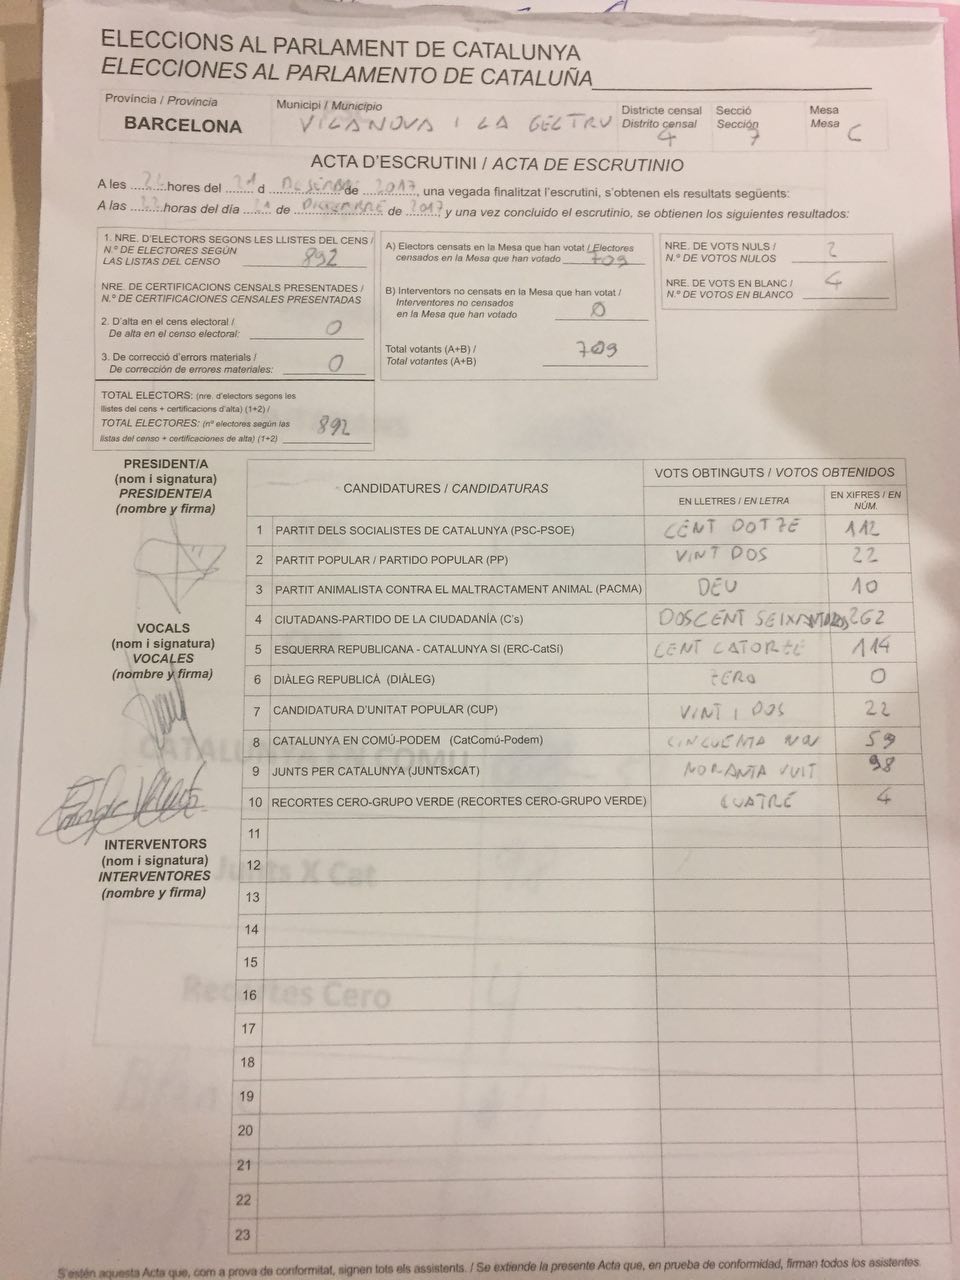 ELECCIONS AL PARLAMENT DE CATALUNYA
ELECCIONES AL PARLAMENTO DE CATALUÑA
Província / Provincia
BARCELONA
Municipi / Municipio
VILANOVA I LA GELTRU
Districte censal
Distrito censal
4
Secció
Sección
7
Mesa
Mesa C
ACTA D'ESCRUTINI / ACTA DE ESCRUTINIO
A les ........hores del 21 d DESEMBRE de 2017, una vegada finalitzat l'escrutini, s'obtenen els resultats següents:
A las 22 horas del día 21 de DICIEMBRE de 2017 y una vez concluido el escrutinio, se obtienen los siguientes resultados:
1. NRE. D'ELECTORS SEGONS LES LLISTES DEL CENS /
N.º DE ELECTORES SEGÚN
LAS LISTAS DEL CENSO 892
NRE. DE CERTIFICACIONS CENSALS PRESENTADES /
N.º DE CERTIFICACIONES CENSALES PRESENTADAS
2. D'alta en el cens electoral /
De alta en el censo electoral: 0
3. De correcció d'errors materials /
De corrección de errores materiales: 0
TOTAL ELECTORS: (nre. d'electors segons les
llistes del cens + certificacions d'alta) (1+2) /
TOTAL ELECTORES: (nº electores según las
listas del censo + certificaciones de alta) (1+2) 892
A) Electors censats en la Mesa que han votat / Electores
censados en la Mesa que han votado 709
B) Interventors no censats en la Mesa que han votat /
Interventores no censados
en la Mesa que han votado 0
Total votants (A+B) /
Total votantes (A+B) 709
NRE. DE VOTS NULS /
N.º DE VOTOS NULOS 2
NRE. DE VOTS EN BLANC /
N.º DE VOTOS EN BLANCO 4
PRESIDENT/A
(nom i signatura)
PRESIDENTE/A
(nombre y firma)
VOCALS
(nom i signatura)
VOCALES
(nombre y firma)
INTERVENTORS
(nom i signatura)
INTERVENTORES
(nombre y firma)
CANDIDATURES / CANDIDATURAS
VOTS OBTINGUTS / VOTOS OBTENIDOS
EN LLETRES / EN LETRA
EN XIFRES / EN
NÚM.
1 PARTIT DELS SOCIALISTES DE CATALUNYA (PSC-PSOE) CENT DOTZE 112
2 PARTIT POPULAR / PARTIDO POPULAR (PP) VINT DOS 22
3 PARTIT ANIMALISTA CONTRA EL MALTRACTAMENT ANIMAL (PACMA) DEU 10
4 CIUTADANS-PARTIDO DE LA CIUDADANÍA (C's) DOSCENT SEIXANTADOS 262
5 ESQUERRA REPUBLICANA - CATALUNYA SI (ERC-CatSí) CENT CATORZE 114
6 DIÀLEG REPUBLICÀ (DIÀLEG) ZERO 0
7 CANDIDATURA D'UNITAT POPULAR (CUP) VINT I DOS 22
8 CATALUNYA EN COMÚ-PODEM (CatComú-Podem) CINCUENTA NOU 59
9 JUNTS PER CATALUNYA (JUNTSxCAT) NORANTA VUIT 98
10 RECORTES CERO-GRUPO VERDE (RECORTES CERO-GRUPO VERDE) CUATRE 4
11
12
13
14
15
16
17
18
19
20
21
22
23
Junts X Cat
Recortes Cero
S'estén aquesta Acta que, com a prova de conformitat, signen tots els assistents. / Se extiende la presente Acta que, en prueba de conformidad, firman todos los asistentes.